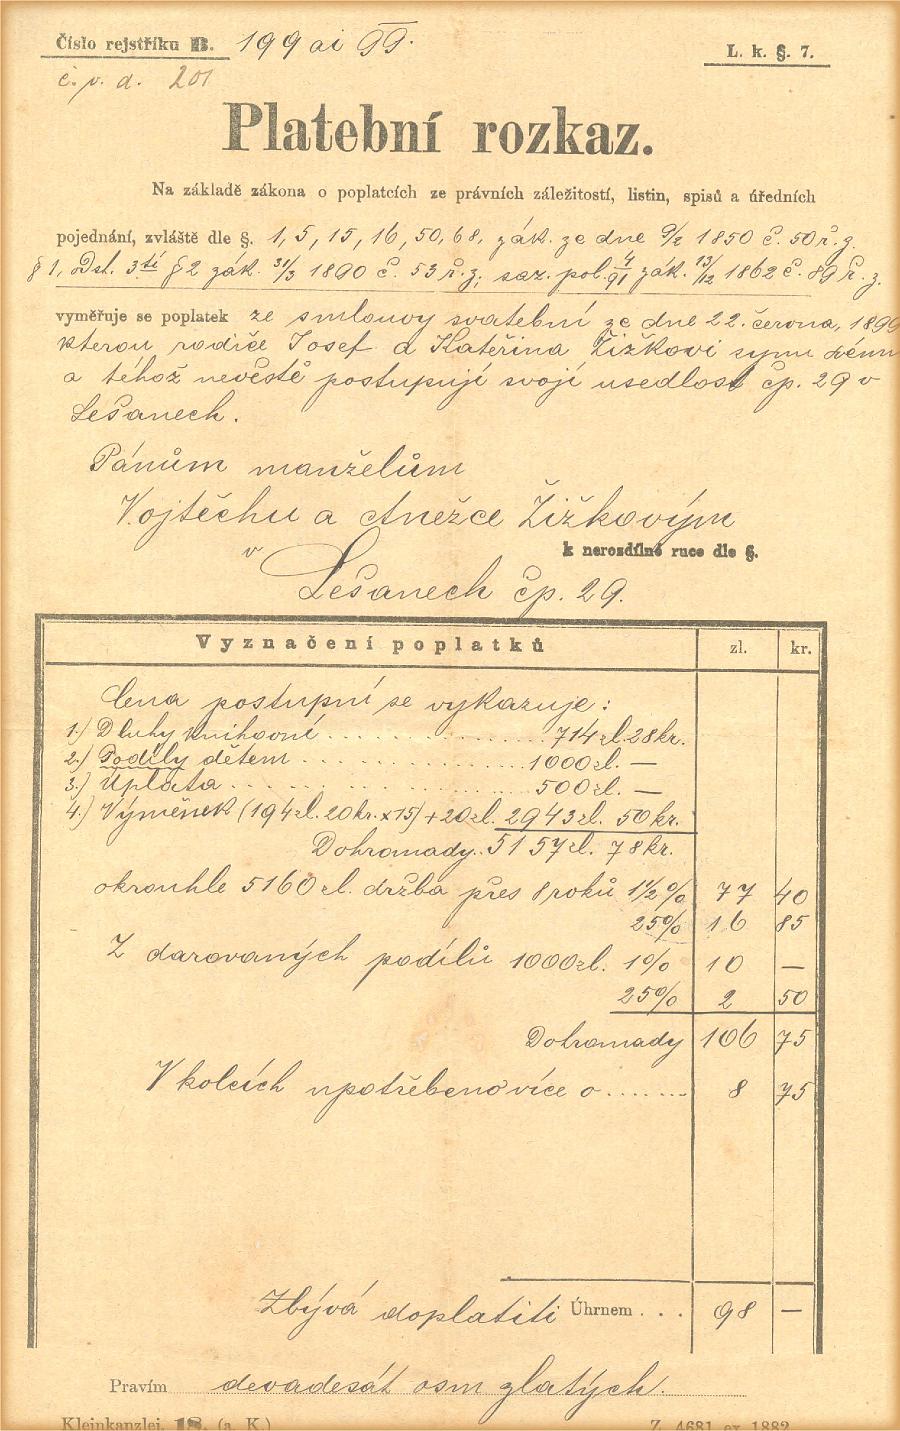 Číslo rejstříku B. 199 ai 99.
L. k. §. 7.
č. p. d. 201
Platební rozkaz.
Na základě zákona o poplatcích ze právních záležitostí, listin, spisů a úředních
pojednání, zvláště dle §. 1, 5, 15, 16, 50, 68, zák. ze dne 9/2 1850 č. 50 ř. z.
§ 1, Dst. 3.tí § 2 zák. 31/3 1890 č. 53 ř. z; saz. pol. 4/91 zák. 13/12 1862 č. 89 ř. z.
vyměřuje se poplatek ze smlouvy svatební ze dne 22. června, 1899
kterou rodiče Josef a Kateřina Žižkovi synu
a téhož nevěstě postupují svojí usedlost čp. 29 v
Lešanech.
Pánům manželům
Vojtěchu a Anežce Žižkovým
k nerozdílné ruce dle §.
v Lešanech čp. 29.
Vyznačení poplatků zl. kr.
Cena postupní se vykazuje:
1.) Dluhy knihovní . . . . . . . . . . . . . . 714 zl. 28 kr.
2.) Podíly dětem . . . . . . . . . . . . . . 1000 zl. —
3.) Úplata . . . . . . . . . . . . . . 500 zl. —
4.) Výměnek (194 zl. 20 kr. x 15) + 20 zl. 2943 zl. 50 kr.
Dohromady . . 5157 zl. 78 kr.
okrouhle 5160 zl. držba přes 8 roků 1 1/2 % 77 40
25% 16 85
Z darovaných podílů 1000 zl. 1% 10 —
25% 2 50
Dohromady 106 75
V kolcích upotřebeno více o . . . . . . . 8 75
Zbývá doplatiti Úhrnem . . . 98 —
Pravím devadesát osm zlatých.
Kleinkanzlei. 18. (a. K.)
Z. 4681 ex 1882